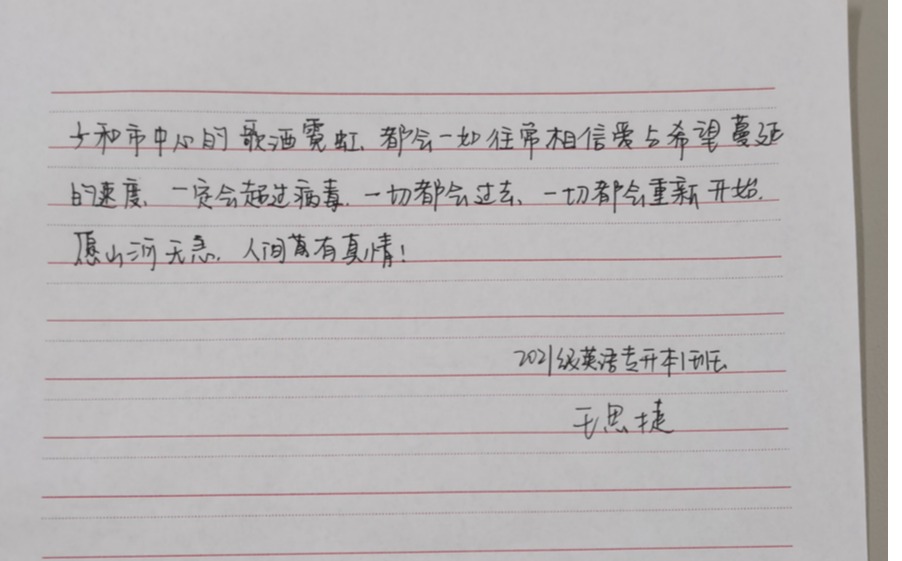 少和市中心的歌酒霓虹、都会一如往常相信爱与希望蔓延
的速度、一定会超过病毒、一切都会过去、一切都会重新开始.
愿山河无恙、人间皆有真情!
2021级英语专升本1班
王思捷